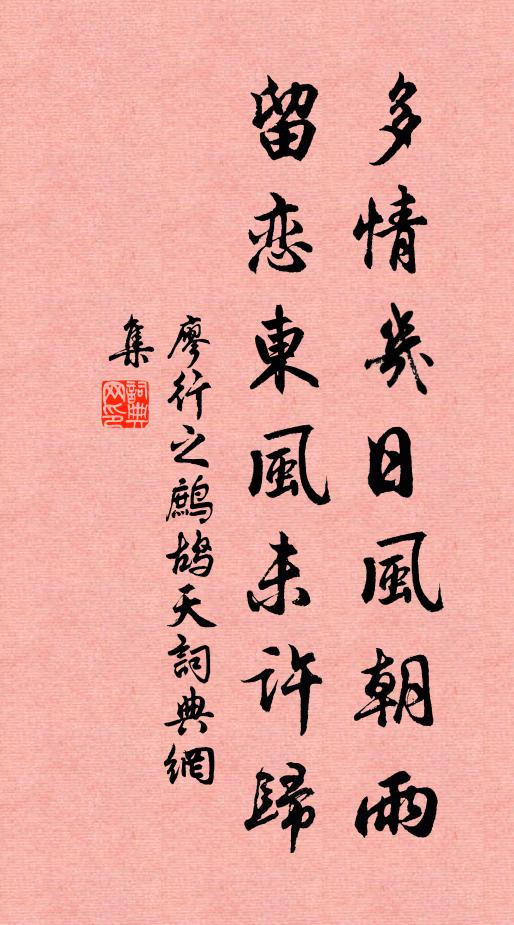 多情幾日風朝雨
留恋東風未許歸
廖行之鷓鴣天詞典網
集
詞典
网印